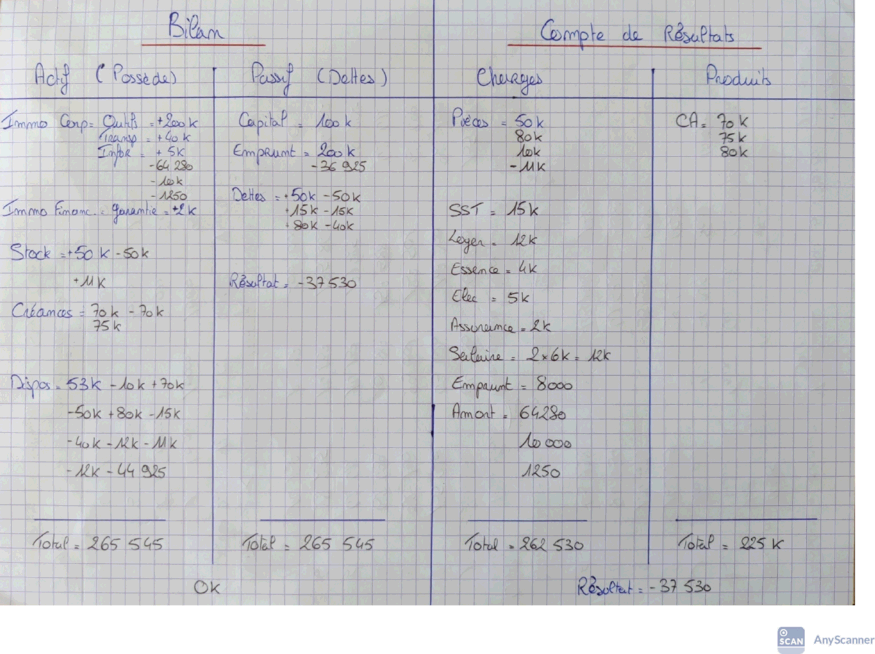 Bilan
Compte de Résultats
Actif (Possède)
Passif (Dettes)
Charges
Produits
Immo Corp = Outils = +200k
Transp = +40k
Infor = +5k
-64 280
-10k
-1250
Immo Financ. = garantie = +2k
Stock = +50k -50k
+11k
Créances = 70k - 70k
75k
Dispos = 53k -10k +70k
-50k +80k -15k
-40k -12k -11k
-12k - 44 925
Total = 265 545
Capital = 100k
Emprunt = 200k
-36 925
Dettes = +50k -50k
+15k -15k
+80k -40k
Résultat = -37 530
Total = 265 545
OK
Pièces = 50k
80k
10k
-11k
SST = 15k
Loyer = 12k
Essence = 4k
Elec = 5k
Assurance = 2k
Salaire = 2x6k = 12k
Emprunt = 8000
Amort = 64280
10 000
1250
Total = 262 530
CA = 70k
75k
80k
Total = 225 k
Résultat = -37 530
SCAN
AnyScanner